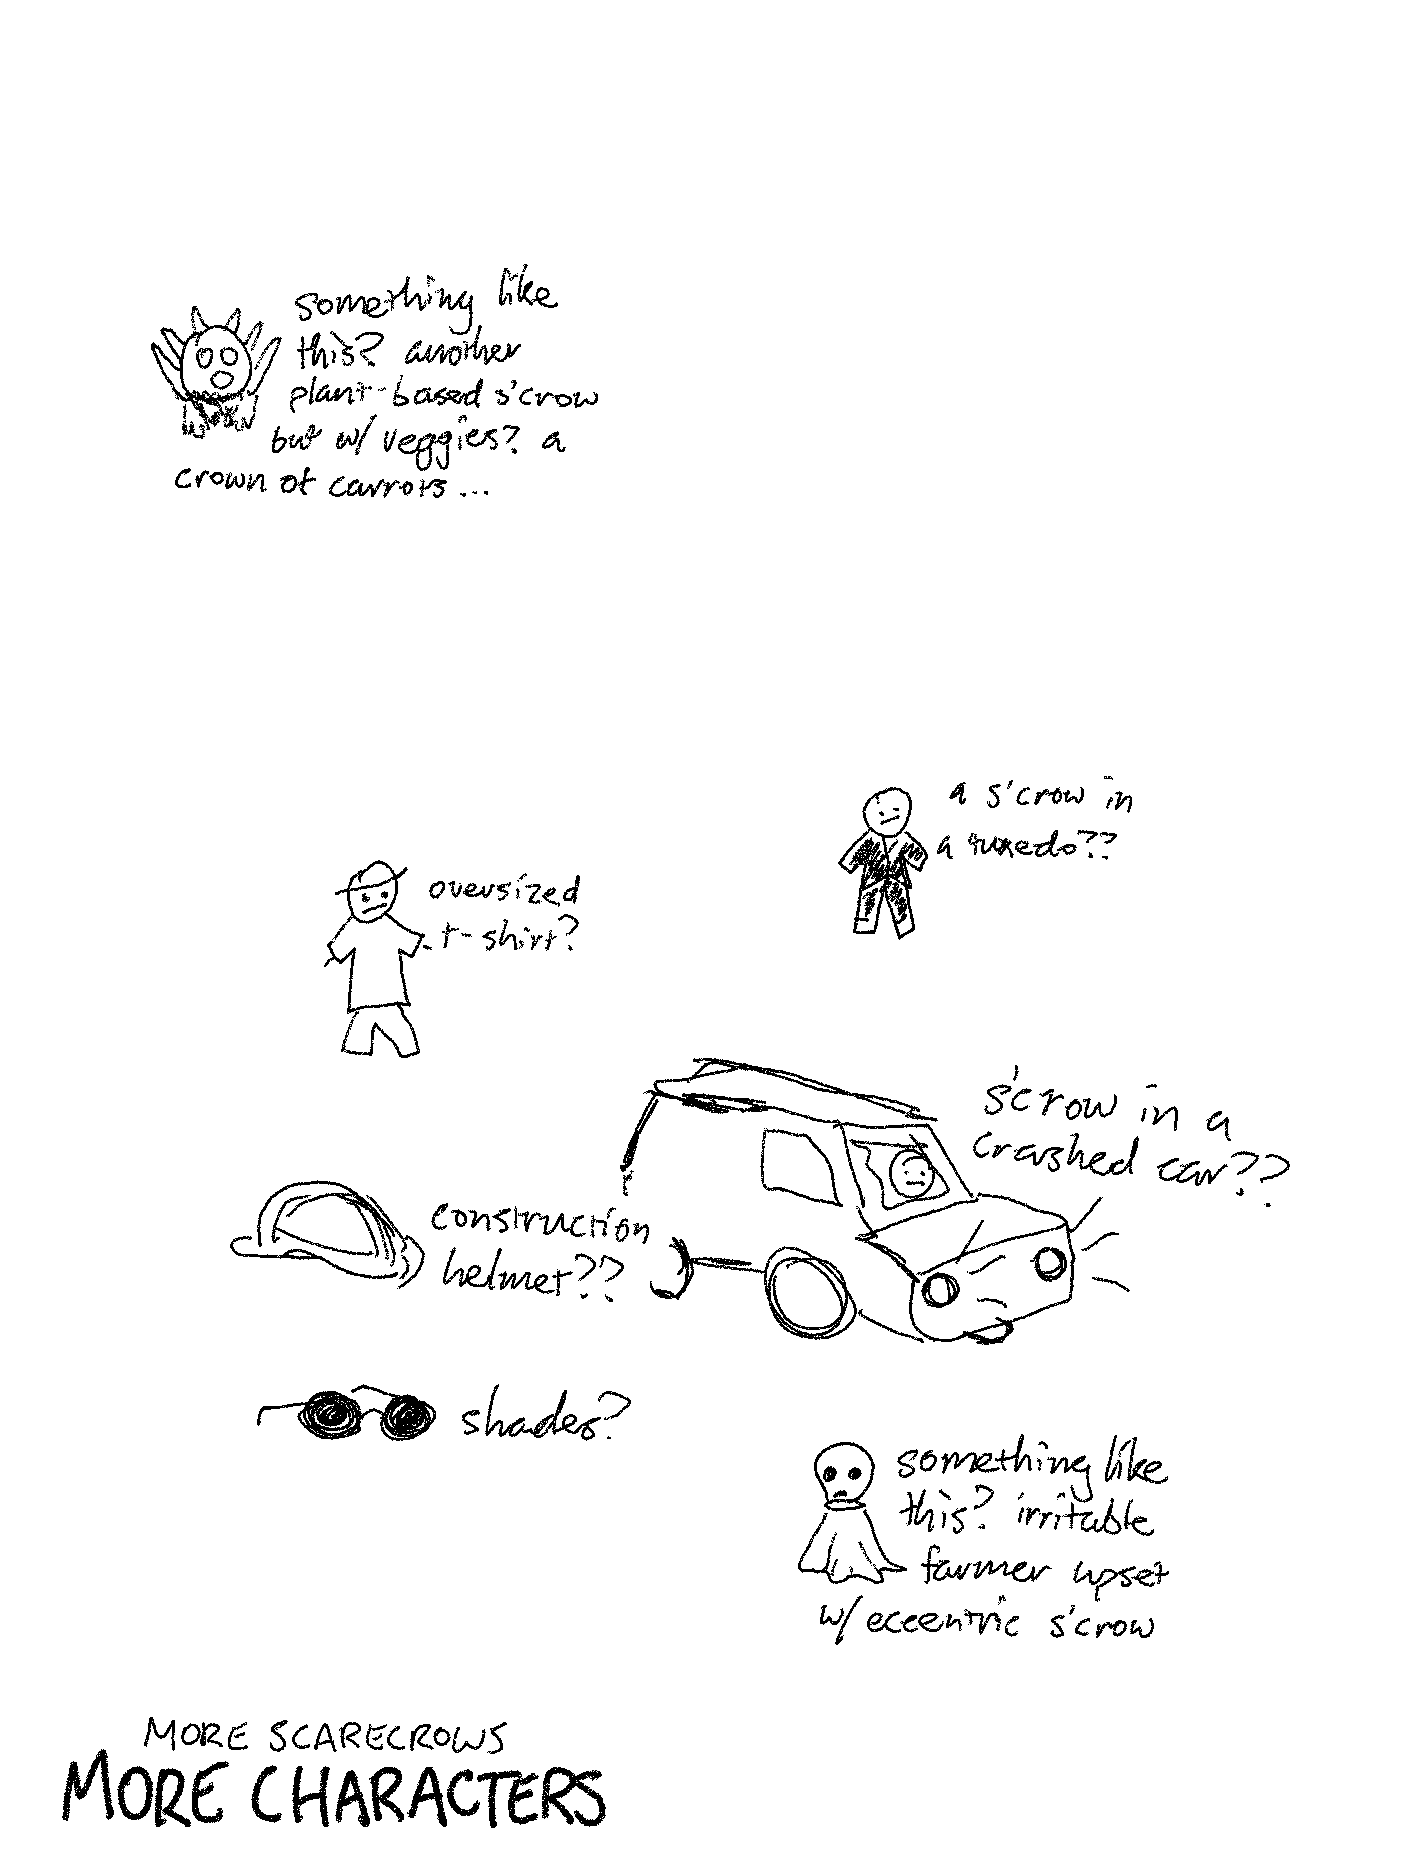 something like
this? another
plant-based s'crow
but w/ veggies? a
crown of carrots...
a s'crow in
a tuxedo??
oversized
t-shirt?
s'crow in a
crashed car??
construction
helmet??
shades?
something like
this? irritable
farmer upset
w/ eccentric s'crow
MORE SCARECROWS
MORE CHARACTERS